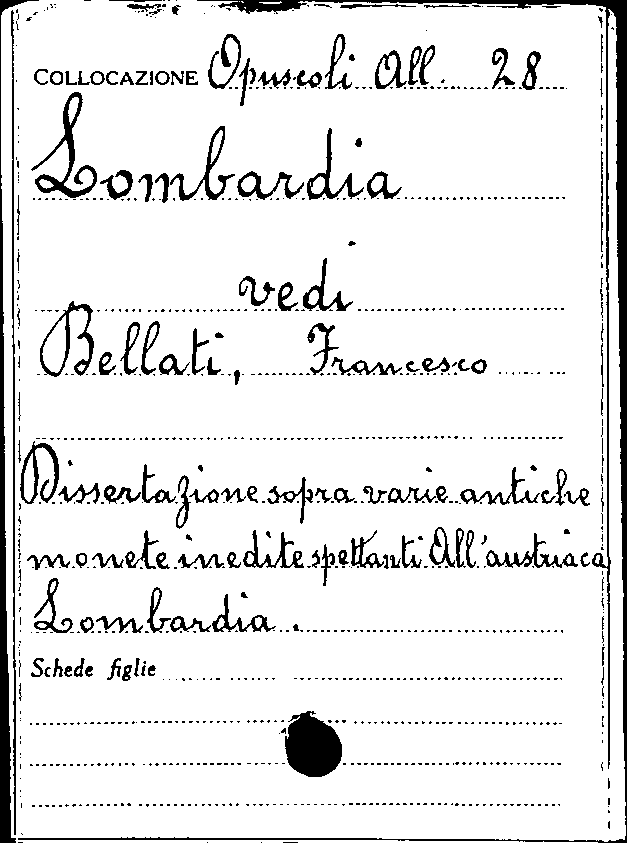 COLLOCAZIONE Opuscoli All. 28
Lombardia
vedi
Bellati, Francesco
Dissertazione sopra varie antiche
monete inedite spettanti All'austriaca
Lombardia.
Schede figlie